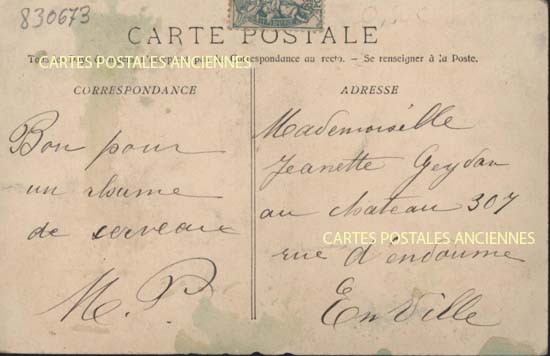 830673
CARTE POSTALE
CARTES POSTALES ANCIENNES
Correspondance au recto. — Se renseigner à la Poste.
CORRESPONDANCE
Bon pour
un rhume
de serveaux
M. P.
ADRESSE
Mademoiselle
Jeanette Geydan
au chateau 307
CARTES POSTALES ANCIENNES
rue d'endoume
En Ville